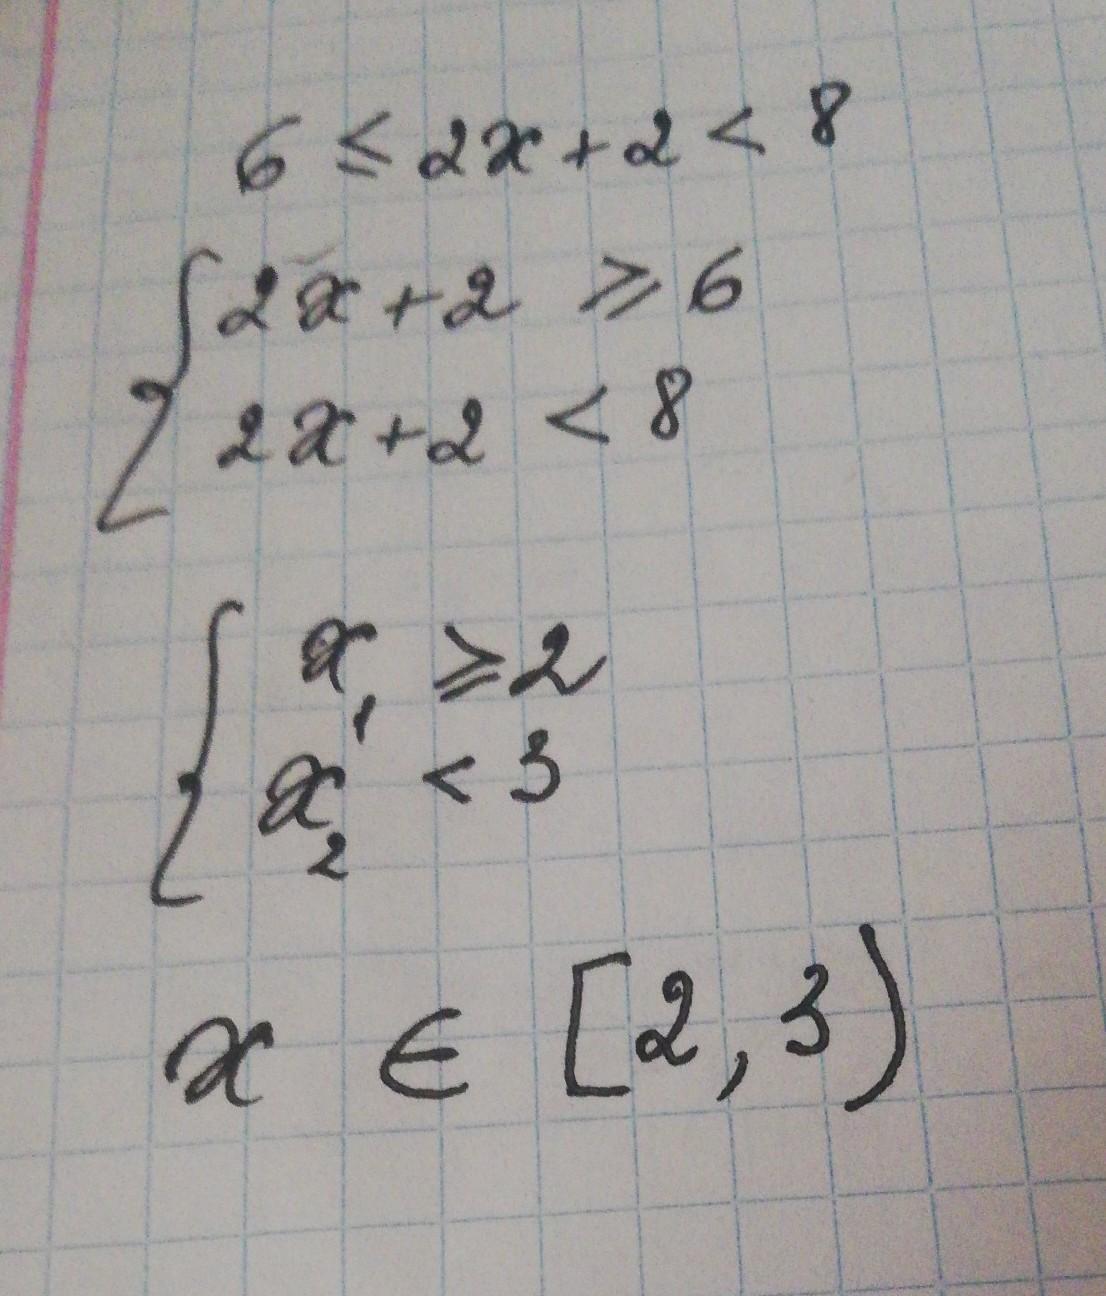 6 ≤ 2x + 2 < 8
{ 2x + 2 ≥ 6
2x + 2 < 8
{ x₁ ≥ 2
x₂ < 3
x ∈ [2, 3)